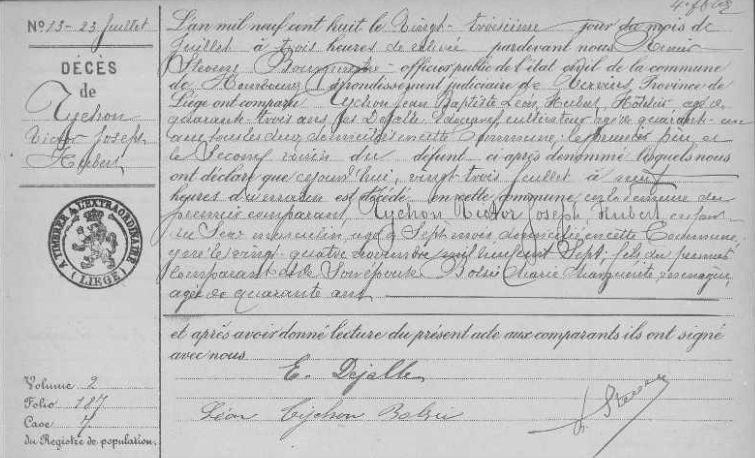 N° 13 - 23 Juillet
DÉCÈS
de
Tychon
Victor Joseph
Hubert
A TIMBRER A L'EXTRAORDINAIRE
(LIEGE)
Volume 2
Folio 187
Case 7
du Registre de population.
L'an mil neuf cent huit le Vingt-troisième jour du mois de
Juillet à trois heures de relevée pardevant nous
Stevens Bourgmestre officier public de l'état civil de la commune
de Hombourg arrondissement judiciaire de Verviers, Province de
Liége ont comparu Tychon Jean Baptiste Léon Hubert, âgé de
quarante trois ans et Dejalle Edouard, cultivateur âgé de quarante un
ans tous les deux domiciliés en cette Commune; le premier père et
le second voisin du défunt ci après dénommé lesquels nous
ont déclaré que cejourd'hui, vingt trois Juillet à neuf
heures du matin est décédé en cette commune, en la demeure du
premier comparant, Tychon Victor Joseph Hubert enfant
du Sexe masculin, agé de Sept mois domicilié en cette Commune,
y né le vingt quatre novembre mil neuf cent Sept; fils du premier
comparant et de Son épouse Bolsée Marie Marguerite, ménagère,
agée de quarante ans
et après avoir donné lecture du présent acte aux comparants ils ont signé
avec nous
E. Dejalle
Léon Tychon Bolsée
Stevens